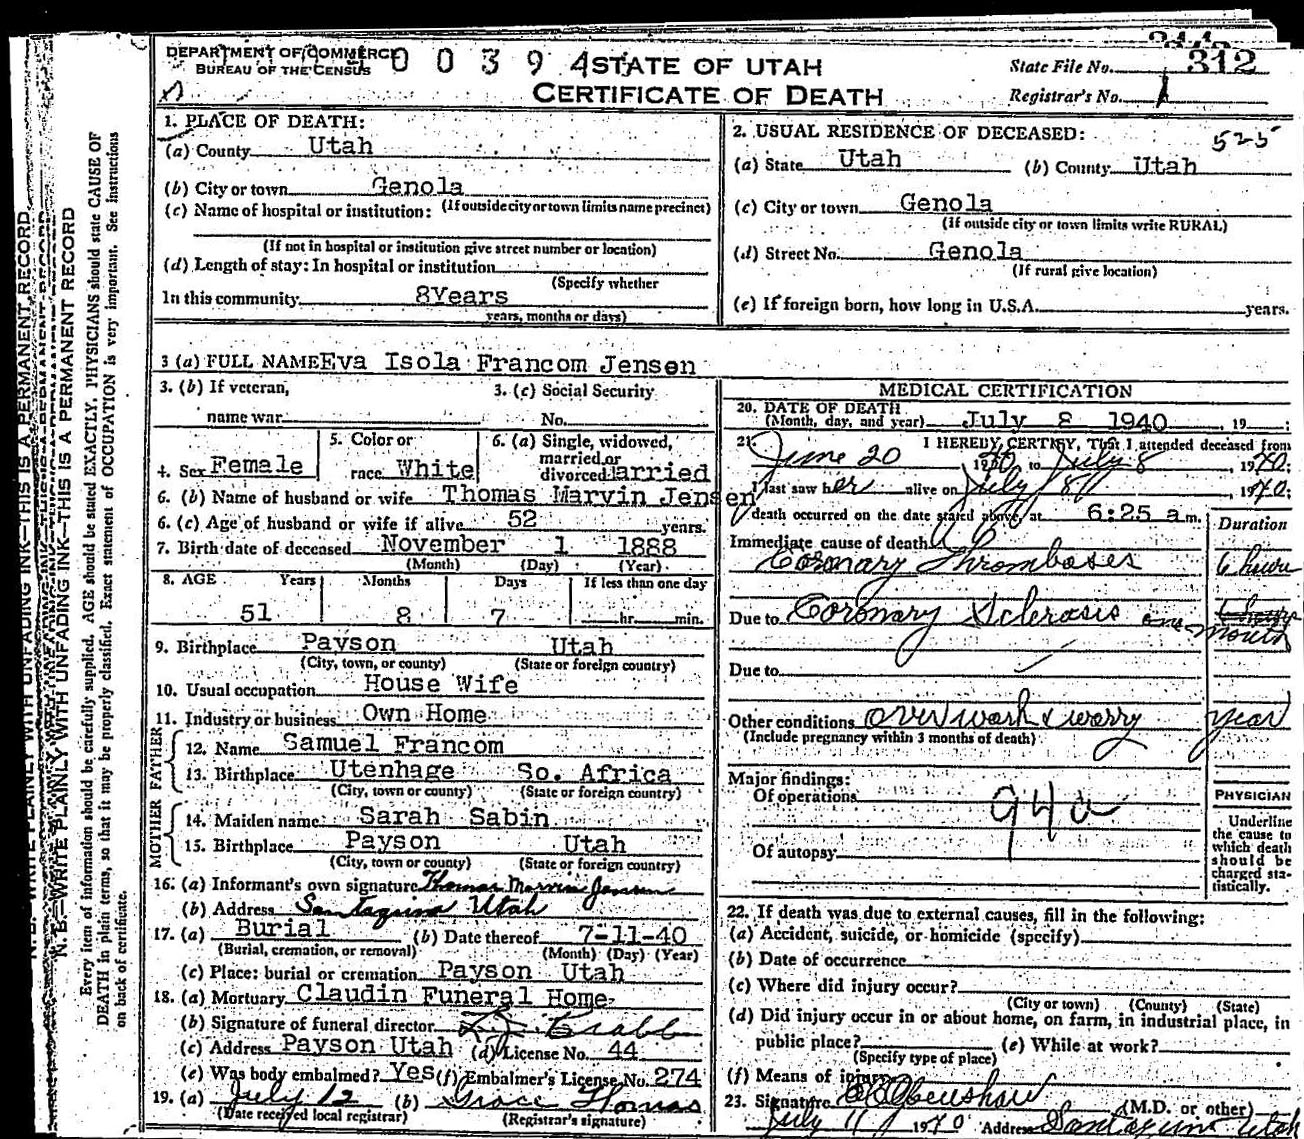 DEPARTMENT OF COMMERCE
BUREAU OF THE CENSUS
0 0 3 9 4
STATE OF UTAH
CERTIFICATE OF DEATH
State File No. 312
Registrar's No. 1
1. PLACE OF DEATH:
(a) County Utah
(b) City or town Genola
(If outside city or town limits name precinct)
(c) Name of hospital or institution:
(If not in hospital or institution give street number or location)
(d) Length of stay: In hospital or institution
(Specify whether
In this community 8Years
years, months or days)
2. USUAL RESIDENCE OF DECEASED: 525
(a) State Utah (b) County Utah
(c) City or town Genola
(If outside city or town limits write RURAL)
(d) Street No. Genola
(If rural give location)
(e) If foreign born, how long in U.S.A. years.
3 (a) FULL NAME Eva Isola Francom Jensen
3. (b) If veteran,
name war
3. (c) Social Security
No.
4. Sex Female
5. Color or
race White
6. (a) Single, widowed,
married or
divorced Married
6. (b) Name of husband or wife Thomas Marvin Jensen
6. (c) Age of husband or wife if alive 52 years.
7. Birth date of deceased November 1 1888
(Month) (Day) (Year)
8. AGE Years Months Days If less than one day
51 8 7 hr. min.
9. Birthplace Payson Utah
(City, town, or county) (State or foreign country)
10. Usual occupation House Wife
11. Industry or business Own Home
FATHER
12. Name Samuel Francom
13. Birthplace Utenhage So. Africa
(City, town or county) (State or foreign country)
MOTHER
14. Maiden name Sarah Sabin
15. Birthplace Payson Utah
(City, town or county) (State or foreign country)
16. (a) Informant's own signature Thomas Marvin Jensen
(b) Address Santaquin Utah
17. (a) Burial (b) Date thereof 7-11-40
(Burial, cremation, or removal) (Month) (Day) (Year)
(c) Place: burial or cremation Payson Utah
18. (a) Mortuary Claudin Funeral Home
(b) Signature of funeral director
(c) Address Payson Utah (d) License No. 44
(e) Was body embalmed? Yes (f) Embalmer's License No. 274
19. (a) July 12 (b) Grace Thomas
(Date received local registrar) (Registrar's signature)
MEDICAL CERTIFICATION
20. DATE OF DEATH
(Month, day, and year) July 8 1940, 19 ;
21. I HEREBY CERTIFY, That I attended deceased from
June 20 to July 8, 1940;
I last saw her alive on July 8, 1940;
death occurred on the date stated above, at 6:25 a m.
Duration
Immediate cause of death
Coronary Thromboses 6 hours
Due to Coronary Sclerosis one month
Due to
Other conditions over work & worry year
(Include pregnancy within 3 months of death)
Major findings:
Of operations
94a
Of autopsy
PHYSICIAN
Underline
the cause to
which death
should be
charged sta-
tistically.
22. If death was due to external causes, fill in the following:
(a) Accident, suicide, or homicide (specify)
(b) Date of occurrence
(c) Where did injury occur?
(City or town) (County) (State)
(d) Did injury occur in or about home, on farm, in industrial place, in
public place? (e) While at work?
(Specify type of place)
(f) Means of injury
23. Signature (M.D. or other)
July 11 1940 Address Santaquin Utah
N. B.—WRITE PLAINLY WITH UNFADING INK—THIS IS A PERMANENT RECORD
N. B.—WRITE PLAINLY WITH UNFADING INK—THIS IS A PERMANENT RECORD
Every item of information should be carefully supplied. AGE should be stated EXACTLY. PHYSICIANS should state CAUSE OF
DEATH in plain terms, so that it may be properly classified. Exact statement of OCCUPATION is very important. See instructions
on back of certificate.